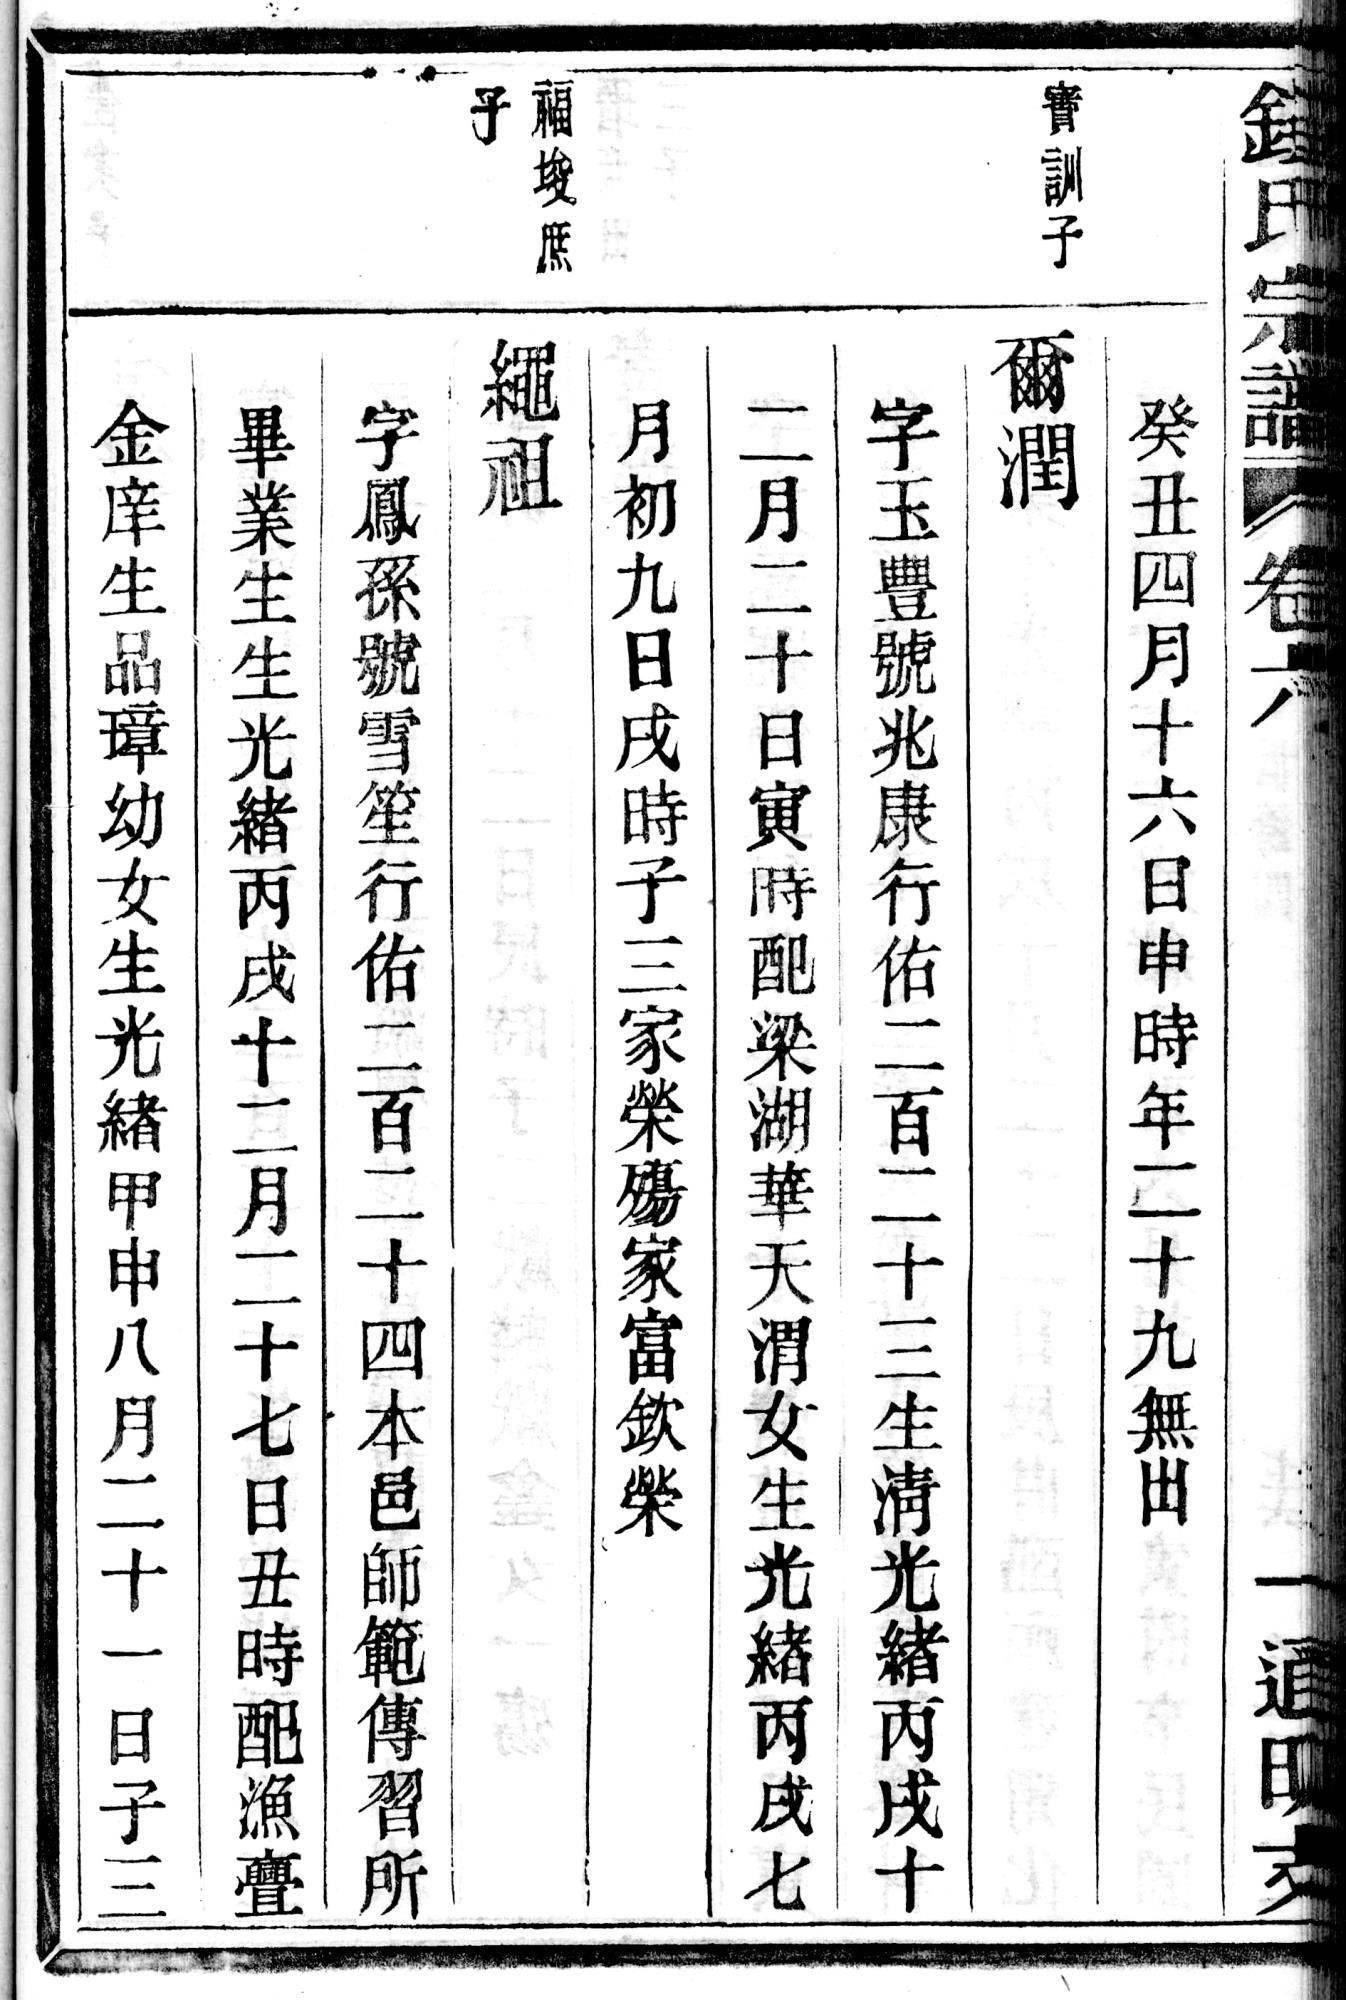 鍾氏宗譜
卷六
一
道明支
癸丑四月十六日申時年二十九無出
寶訓子
爾潤
字玉豐號兆康行佑二百二十三生清光緒丙戌十
二月二十日寅時配梁湖華天渭女生光緒丙戌七
月初九日戌時子三家榮殤家富欽榮
福埈庶
子
繩祖
字鳳孫號雪笙行佑二百二十四本邑師範傳習所
畢業生生光緒丙戌十二月二十七日丑時配漁亹
金庠生品璋幼女生光緒甲申八月二十一日子三